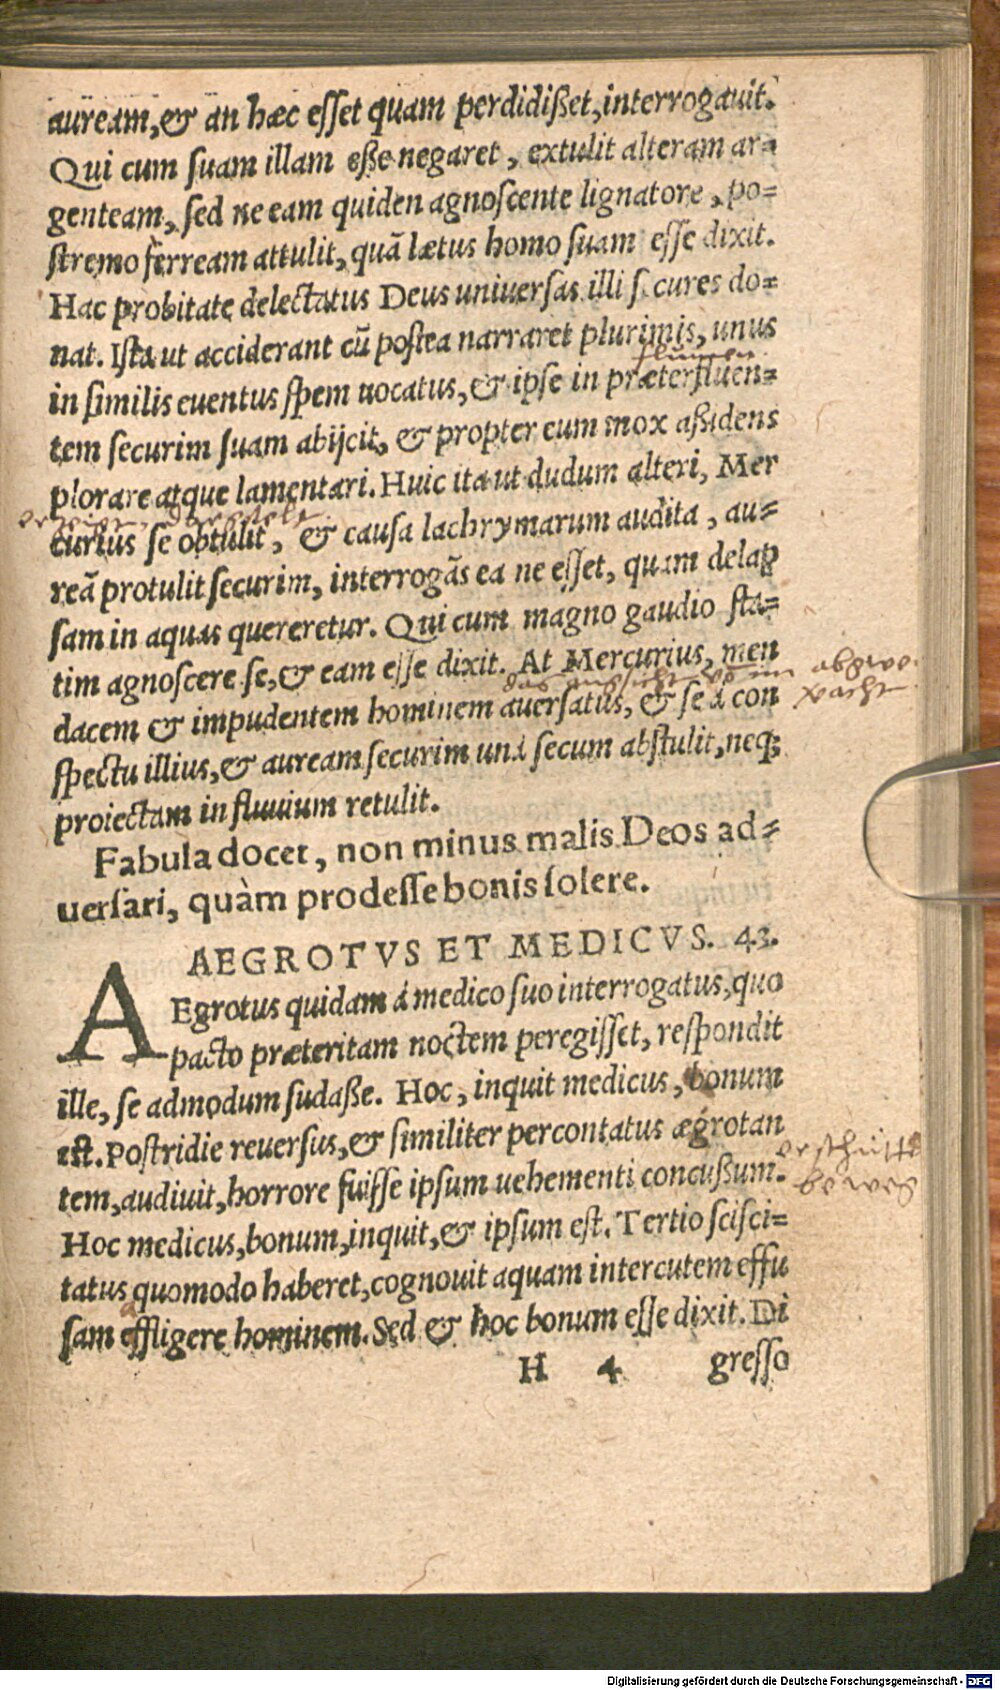 auream,& an hæc eſſet quam perdidißet,interrogauit.
Qui cum ſuam illam eße negaret, extulit alteram ar=
genteam, ſed ne eam quiden agnoſcente lignatore, po=
ſtremo ferream attulit, quã lætus homo ſuam eſſe dixit.
Hac probitate delectatus Deus uniuerſas illi ſecures do=
nat. Iſta ut acciderant cũ poſtea narraret plurimis, unus
in ſimilis euentus ſpem uocatus,& ipſe in præterfluen=
tem ſecurim ſuam abijcit, & propter eum mox aßidens
plorare atque lamentari. Huic ita ut dudum alteri, Mer
curius ſe obtulit, & cauſa lachrymarum audita, au=
reã protulit ſecurim, interrogãs ea ne eſſet, quam delap
ſam in aquas quereretur. Qui cum magno gaudio ſta=
tim agnoſcere ſe,& eam eſſe dixit. At Mercurius, men
das angſicht
abgwe
dacem & impudentem hominem auerſatus, & ſe à con
ſpectu illius,& auream ſecurim unà ſecum abſtulit,neq;
proiectam in fluuium retulit.
Fabula docet, non minus malis Deos ad=
uerſari, quàm prodeſſe bonis ſolere.
AEGROTVS ET MEDICVS. 43.
AEgrotus quidam á medico ſuo interrogatus,quo
pacto præteritam noctem peregiſſet, reſpondit
ille, ſe admodum ſudaße. Hoc, inquit medicus, bonum
eſt. Poſtridie reuerſus,& ſimiliter percontatus ægrotan
tem,audiuit,horrore fuiſſe ipſum uehementi concußum.
Hoc medicus,bonum,inquit,& ipſum eſt. Tertio ſciſci=
tatus quomodo haberet,cognouit aquam intercutem effu
ſam effligere hominem. Sed & hoc bonum eſſe dixit. Di
H 4 greſſo
Digitalisierung gefördert durch die Deutsche Forschungsgemeinschaft - DFG